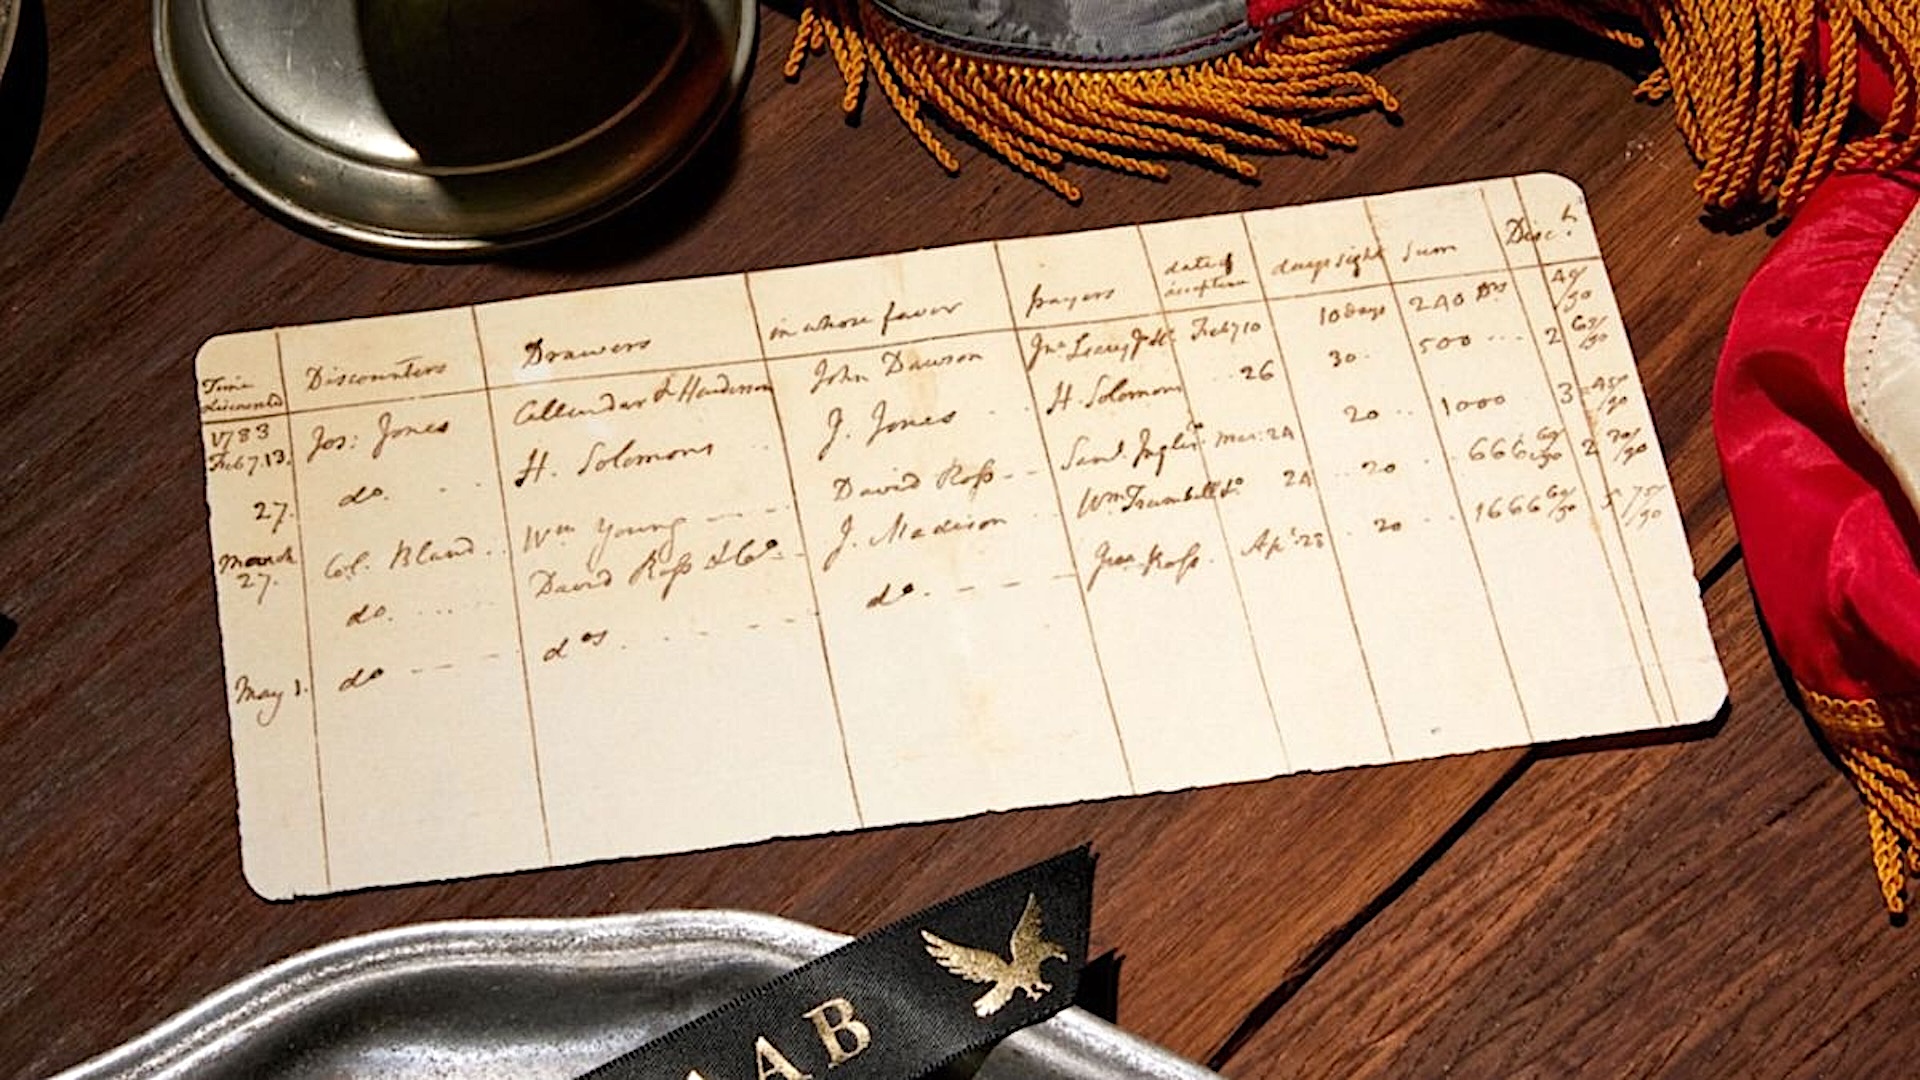 Time discounted Discounters Drawers in whose favor payers date of acceptance days sight Sum Disc.t
1783 Feby 13. Jos: Jones Callendar & Henderson John Dawson Jno Feby 10 10 days 240 Drs 40/90
27. do. H. Solomons J. Jones H. Solomons 26 30. 500 2 60/90
March 27. Col. Bland Wm Young David Ross Saml. Inglis Mar: 24 20 1000 3
do. David Ross & Co. J. Madison Wm Turnbull & Co 24 20 666 60/90 2 20/90
May 1. do dos. do. Jno. Ross. Apl. 28 20 1666 60/90 5 75/90
AAB